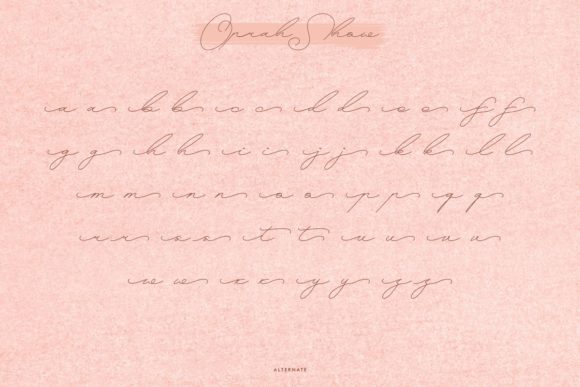 Oprah Show
a a b b c c d d e e f f
g g h h i i j j k k l l
m m n n o o p p q q
r r s s t t u u v v
w w x x y y z z
ALTERNATE